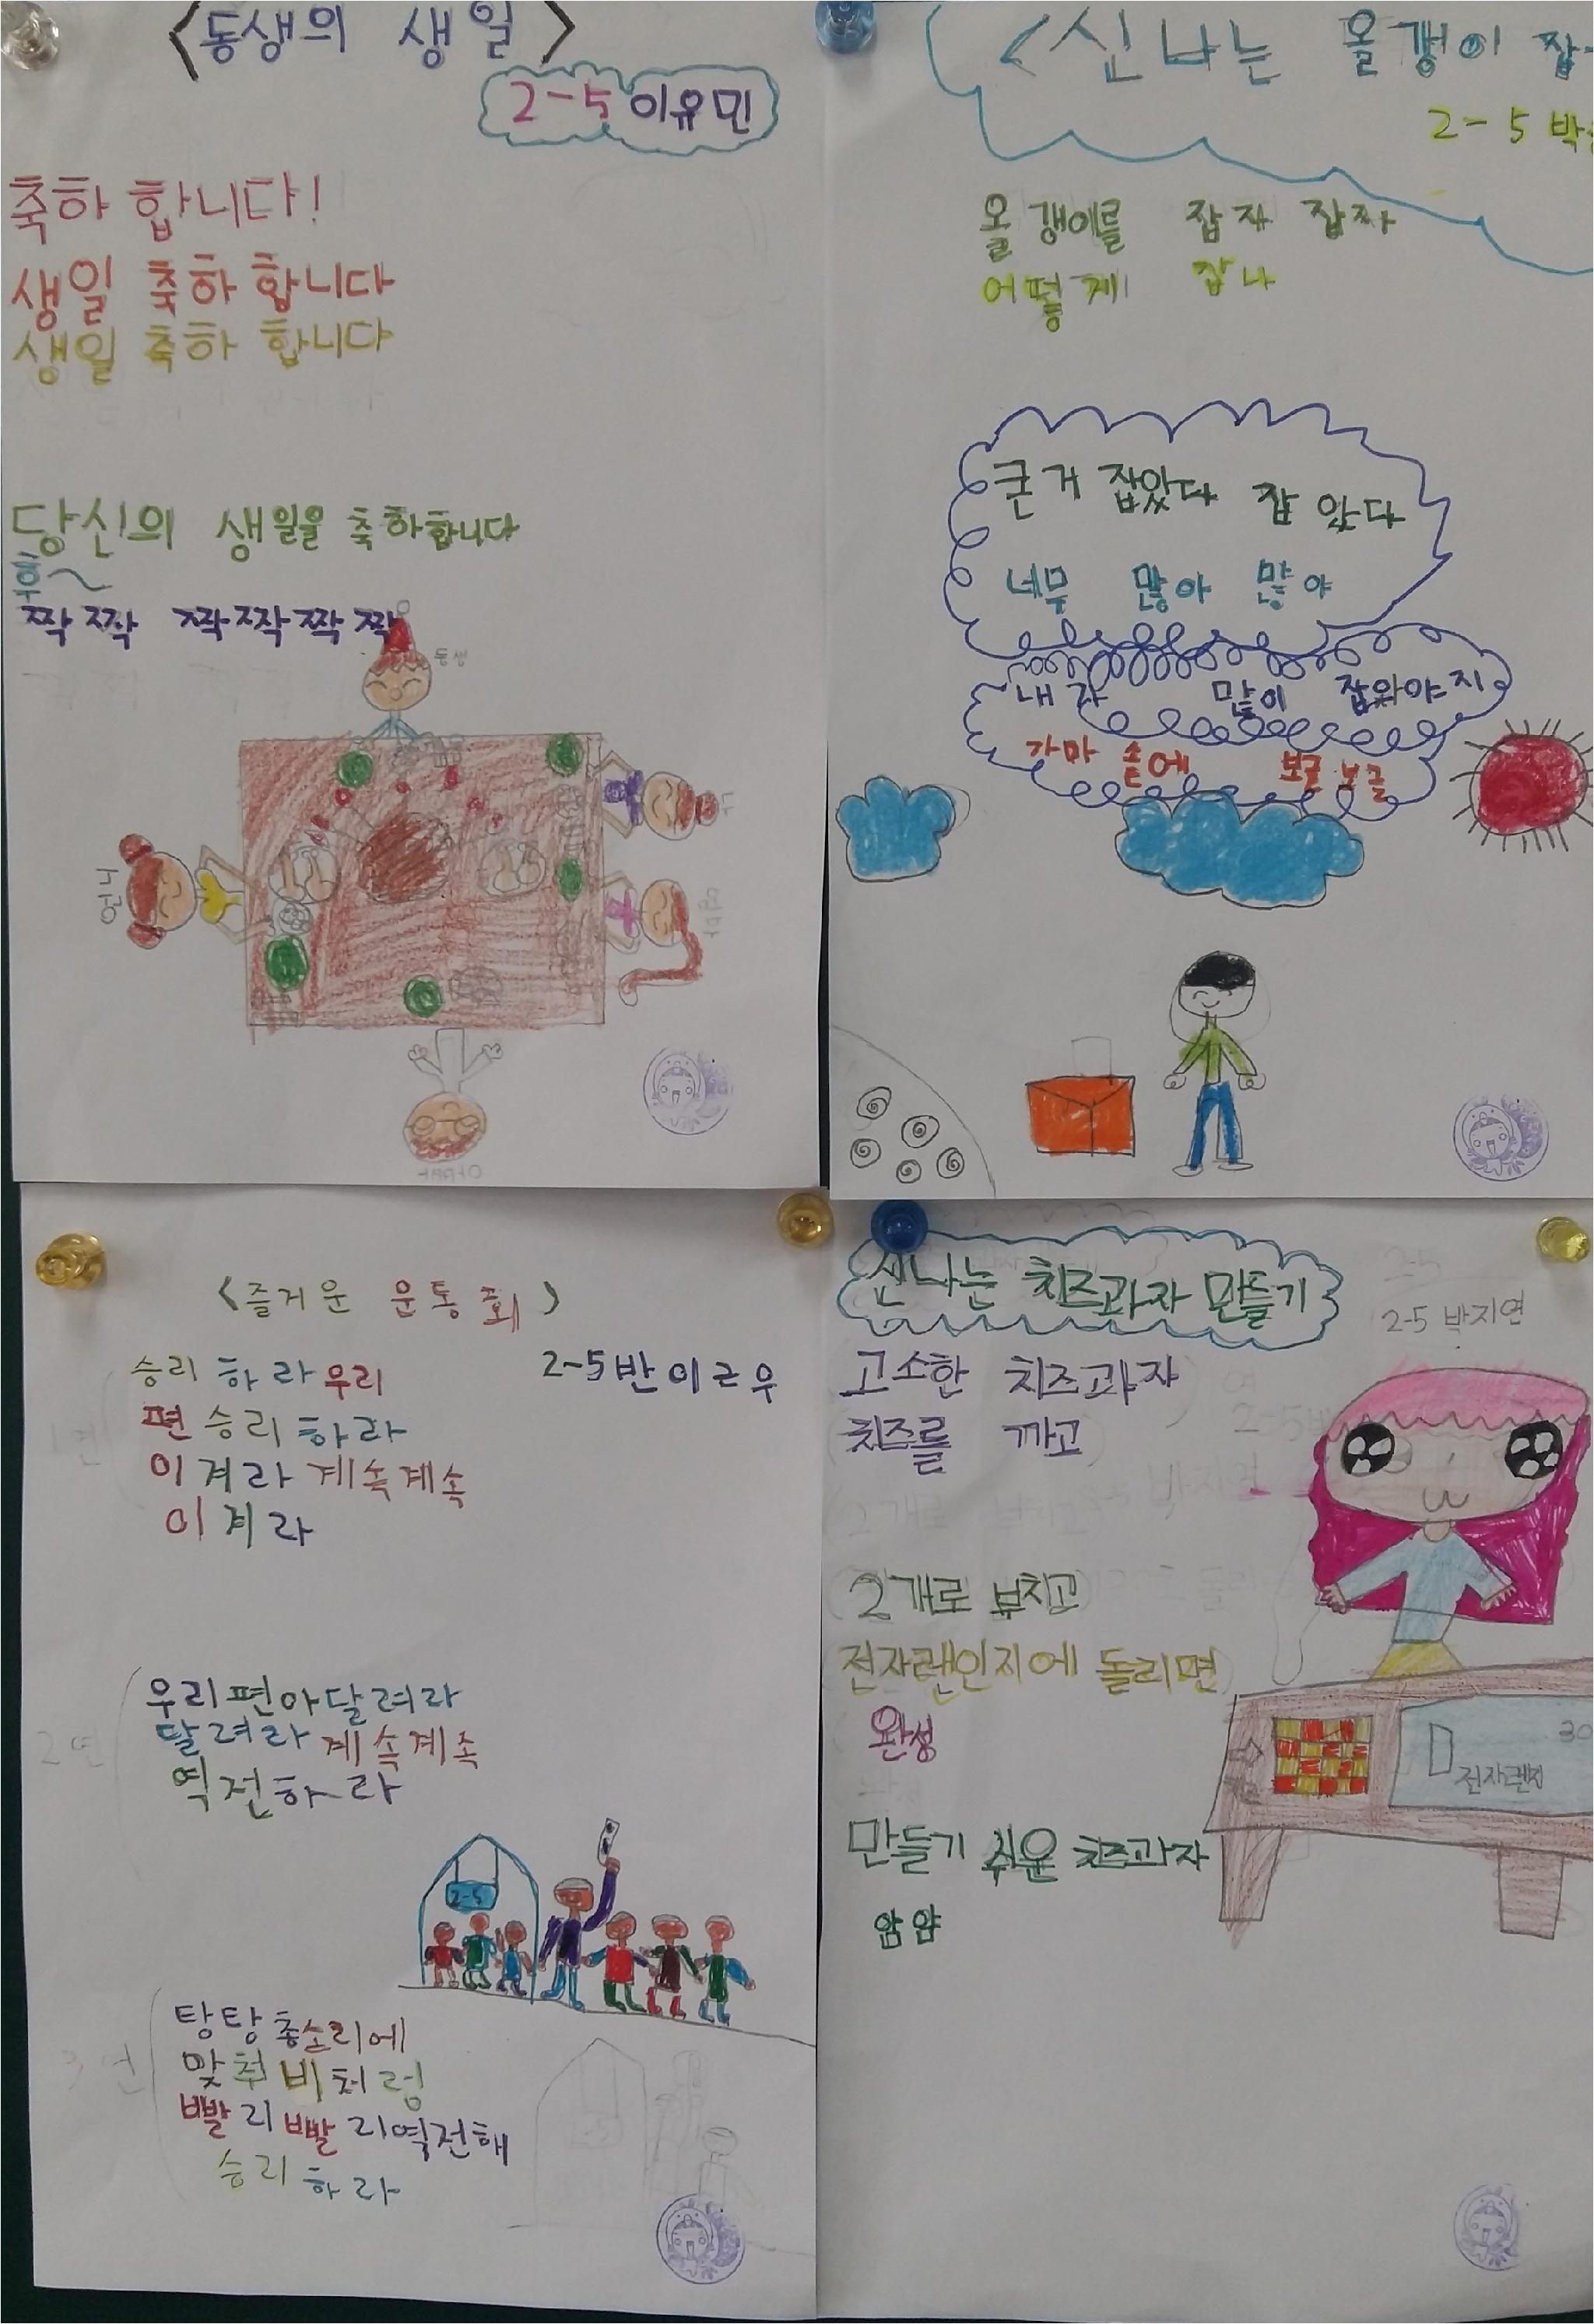 <동생의 생일>
2-5 이유민
축하 합니다!
생일 축하 합니다
생일 축하 합니다
당신의 생일을 축하합니다
후~
짝짝 짝짝짝짝
동생
언니
<신나는 올갱이 잡
2-5 박
올갱이를 잡자 잡자
어떻게 잡나
큰거 잡았다 잡았다
너무 많아 많아
내가 많이 잡와야지
가마 솥에 보글보글
<즐거운 운동회>
2-5반 이근우
승리하라 우리
편 승리하라
이겨라 계속계속
이겨라
2연
우리편아달려라
달려라 계속계속
역전하라
2-5
3연
탕탕 총소리에
맞춰 비처럼
빨리빨리역전해
승리하라
신나는 치즈과자 만들기
2-5 박지연
고소한 치즈과자
치즈를 까고
2개로 부치고
전자랜인지에 돌리면
완성
30
전자렌지
만들기 쉬운 치즈과자
얌얌